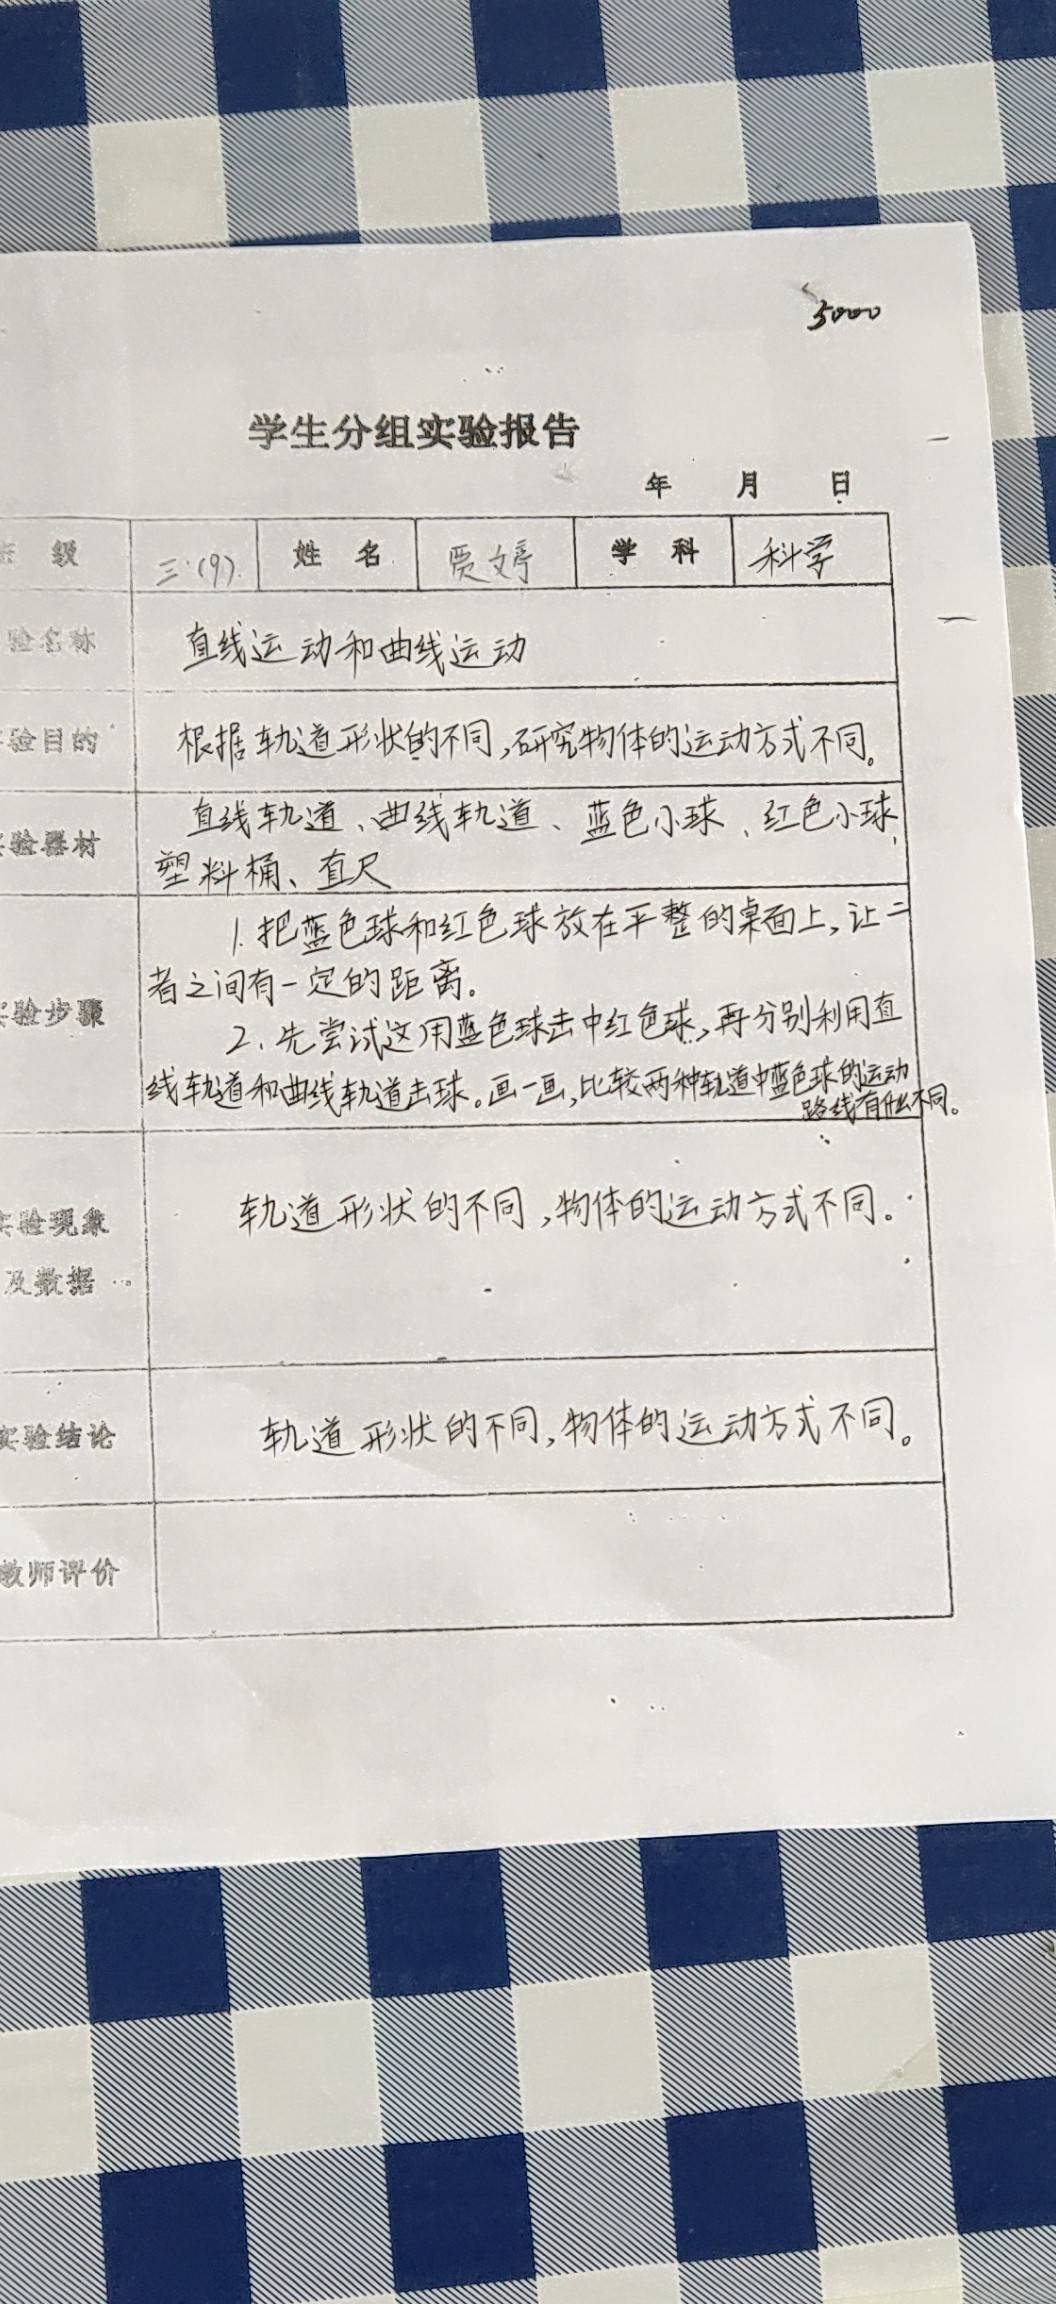 5000
学生分组实验报告
年 月 日
级 三(9) 姓名 贾婷 学科 科学
验名称 直线运动和曲线运动
验目的 根据轨道形状的不同,研究物体的运动方式不同。
验器材 直线轨道、曲线轨道、蓝色小球、红色小球,
塑料桶、直尺
1.把蓝色球和红色球放在平整的桌面上,让二
者之间有一定的距离。
实验步骤
2.先尝试这用蓝色球击中红色球,再分别利用直
线轨道和曲线轨道击球。画一画,比较两种轨道中蓝色球的运动
路线有什么不同。
实验现象 轨道形状的不同,物体的运动方式不同。
及数据
实验结论 轨道形状的不同,物体的运动方式不同。
教师评价